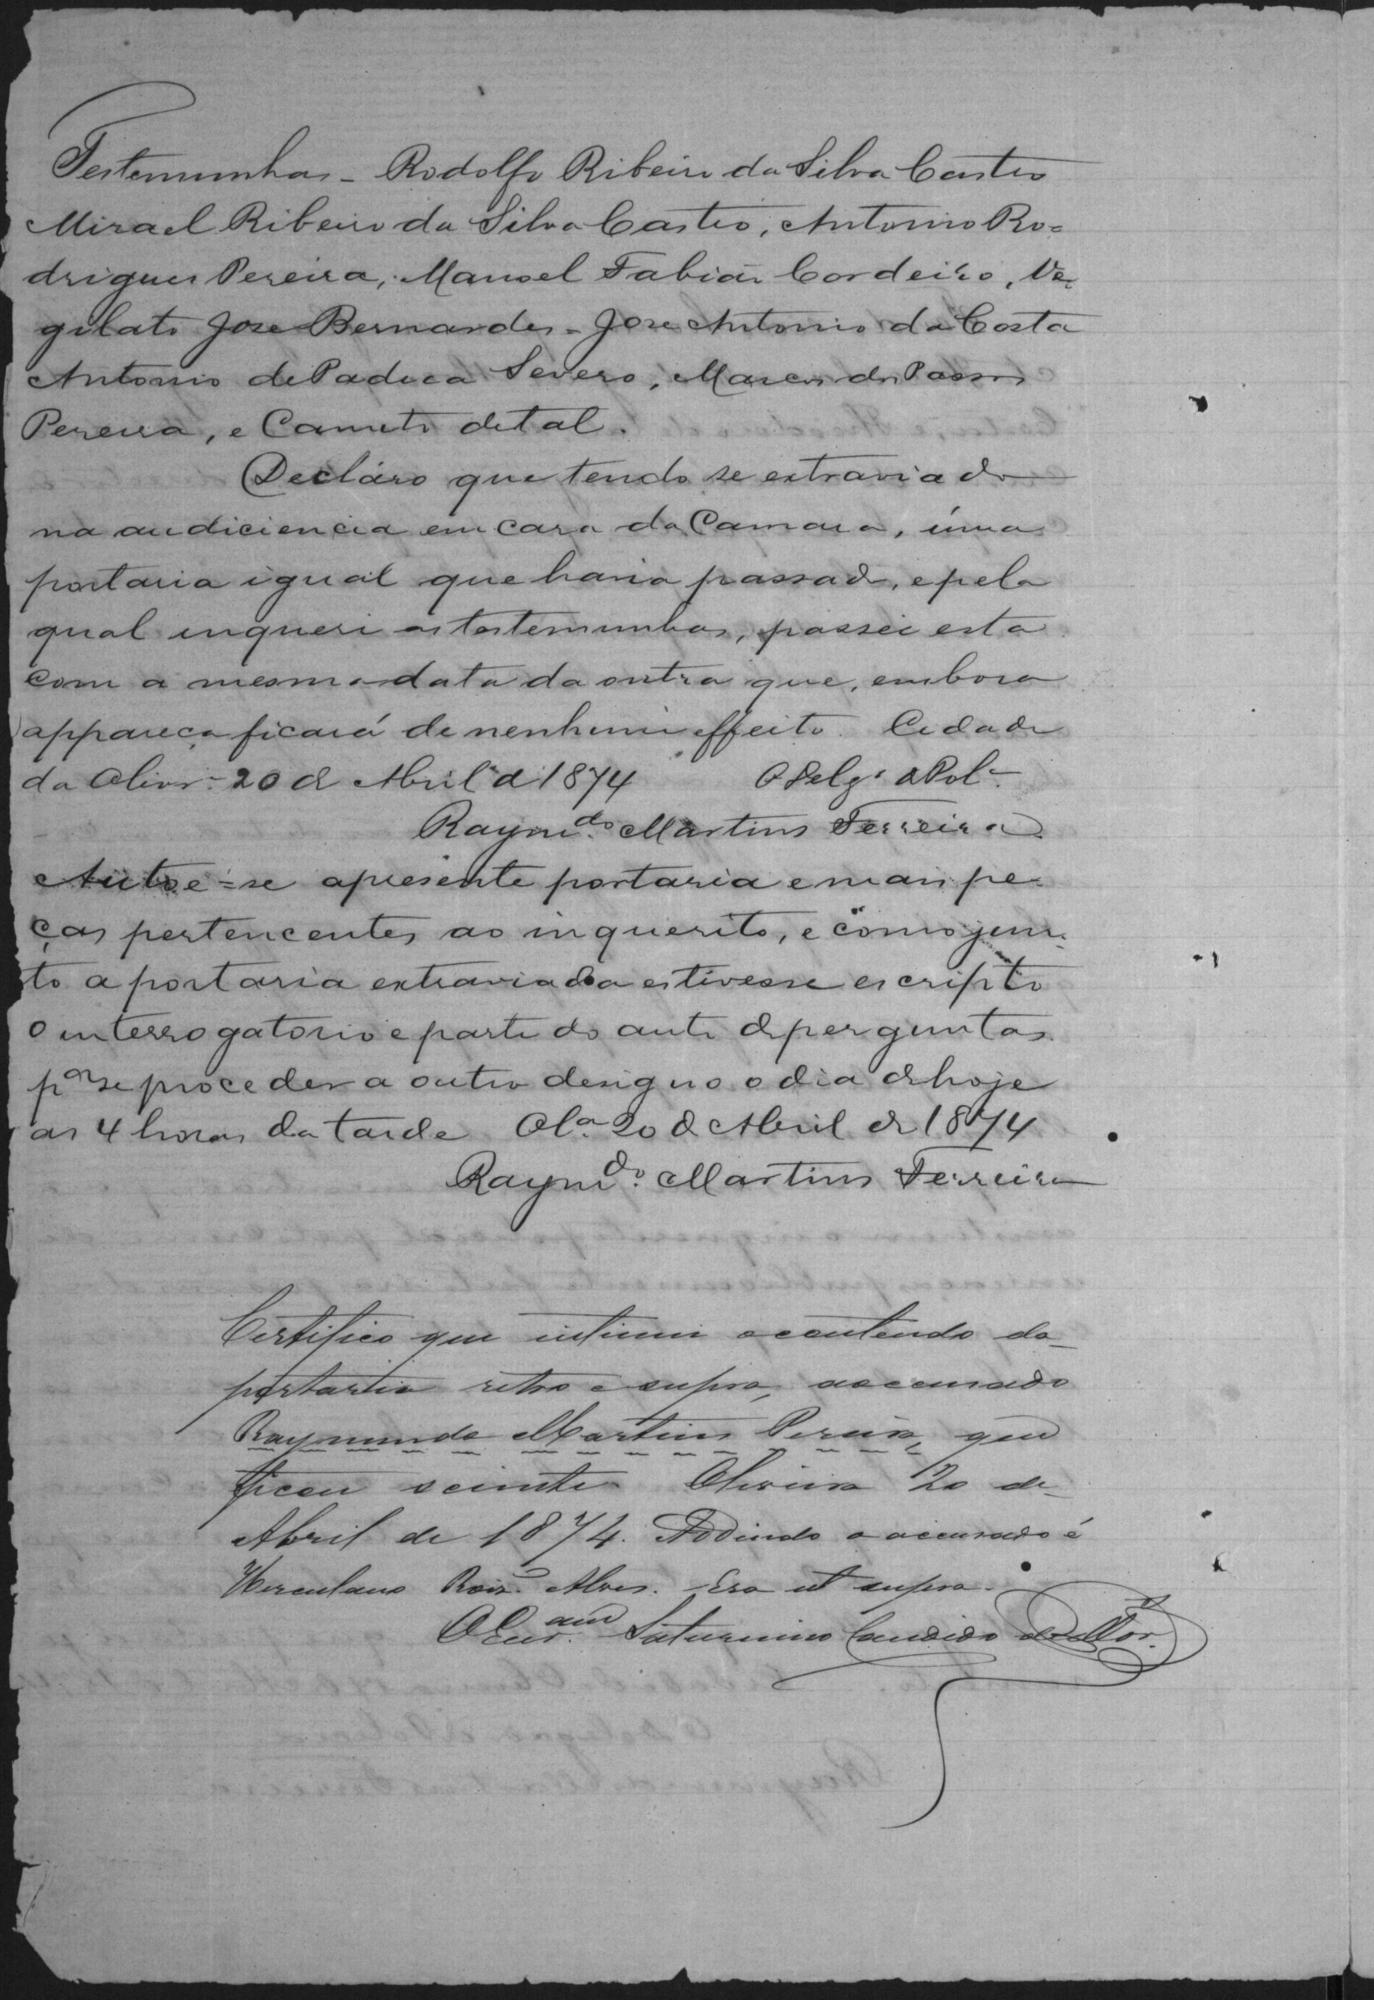 Testemunhas - Rodolfo Ribeiro da Silva Castro
Mizael Ribeiro da Silva Castro, Antonio Ro=
drigues Pereira, Manoel Fabião Cordeiro, Ve=
gilato Jose Bernardes - Jose Antonio da Costa
Antonio de Padua Severo, Marcos dos Passos
Pereira, e Cameto de tal.
Decláro que tendo se extraviado
na audiciencia em caza da Camara, úma
portaria igual que havia passado, e pela
qual inqueri as testemunhas, passei esta
com a mesma data da outra que, embora
appareça ficará de nenhum effeito. Cidade
da Olivrª 20 de Abril de 1874 O Delgº de Polª
Raymdo. Martins Ferreira
Autoe-se apresente portaria e mais pe-
ças pertencentes ao inquerito, e como jun-
to a portaria extraviada estivesse escripto
o interrogatorio e parte do auto de perguntas
pª se proceder a outro designo o dia de hoje
as 4 horas da tarde Olª 20 de Abril de 1874
Raymdo. Martins Ferreira
Certifico que intimei o contendo da
portaria retro e supra, ao accusado
Raymundo Martins Pereira, que
ficou sciente Oliveira 20 de
Abril de 1874. Addindo o accusado é
Herculano Roiz Alves. Era ut supra.
O Escram Saturnino Candido